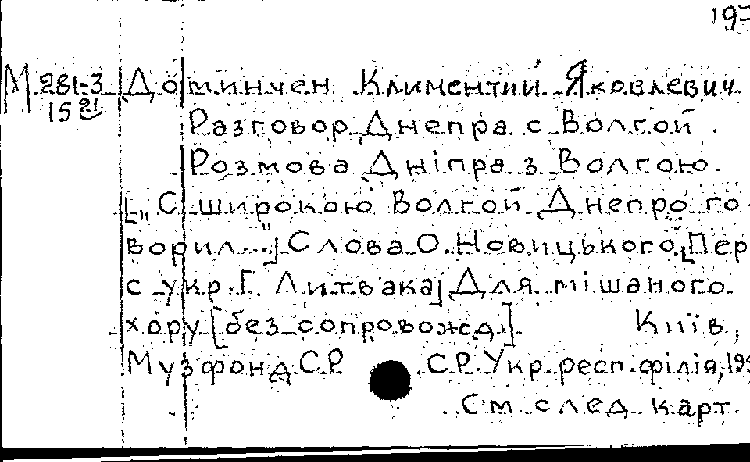 197
М 281-3 Доминчен Климентий Яковлевич
15 21
Разговор Днепра с Волгой.
Розмова Дніпра з Волгою.
[„С широкою Волгой Днепро го
ворил..."] Слова О. Новицького [Пер
с укр. Г. Литвака] Для мішаного
хору [без сопровожд.] Київ,
Музфонд СР СР. Укр. респ. філія, 195
См след карт.